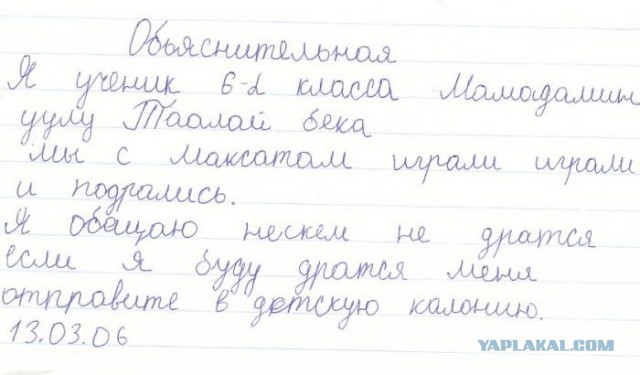 Обьяснительная
Я ученик 6-d класса Мамадамин
уулу Таалай бека
мы с максатам играли играли
и подрались.
Я обещаю нескем не дратся
если я буду дратся меня
отправите в детскую калонию.
13.03.06
YAPLAKAL.COM